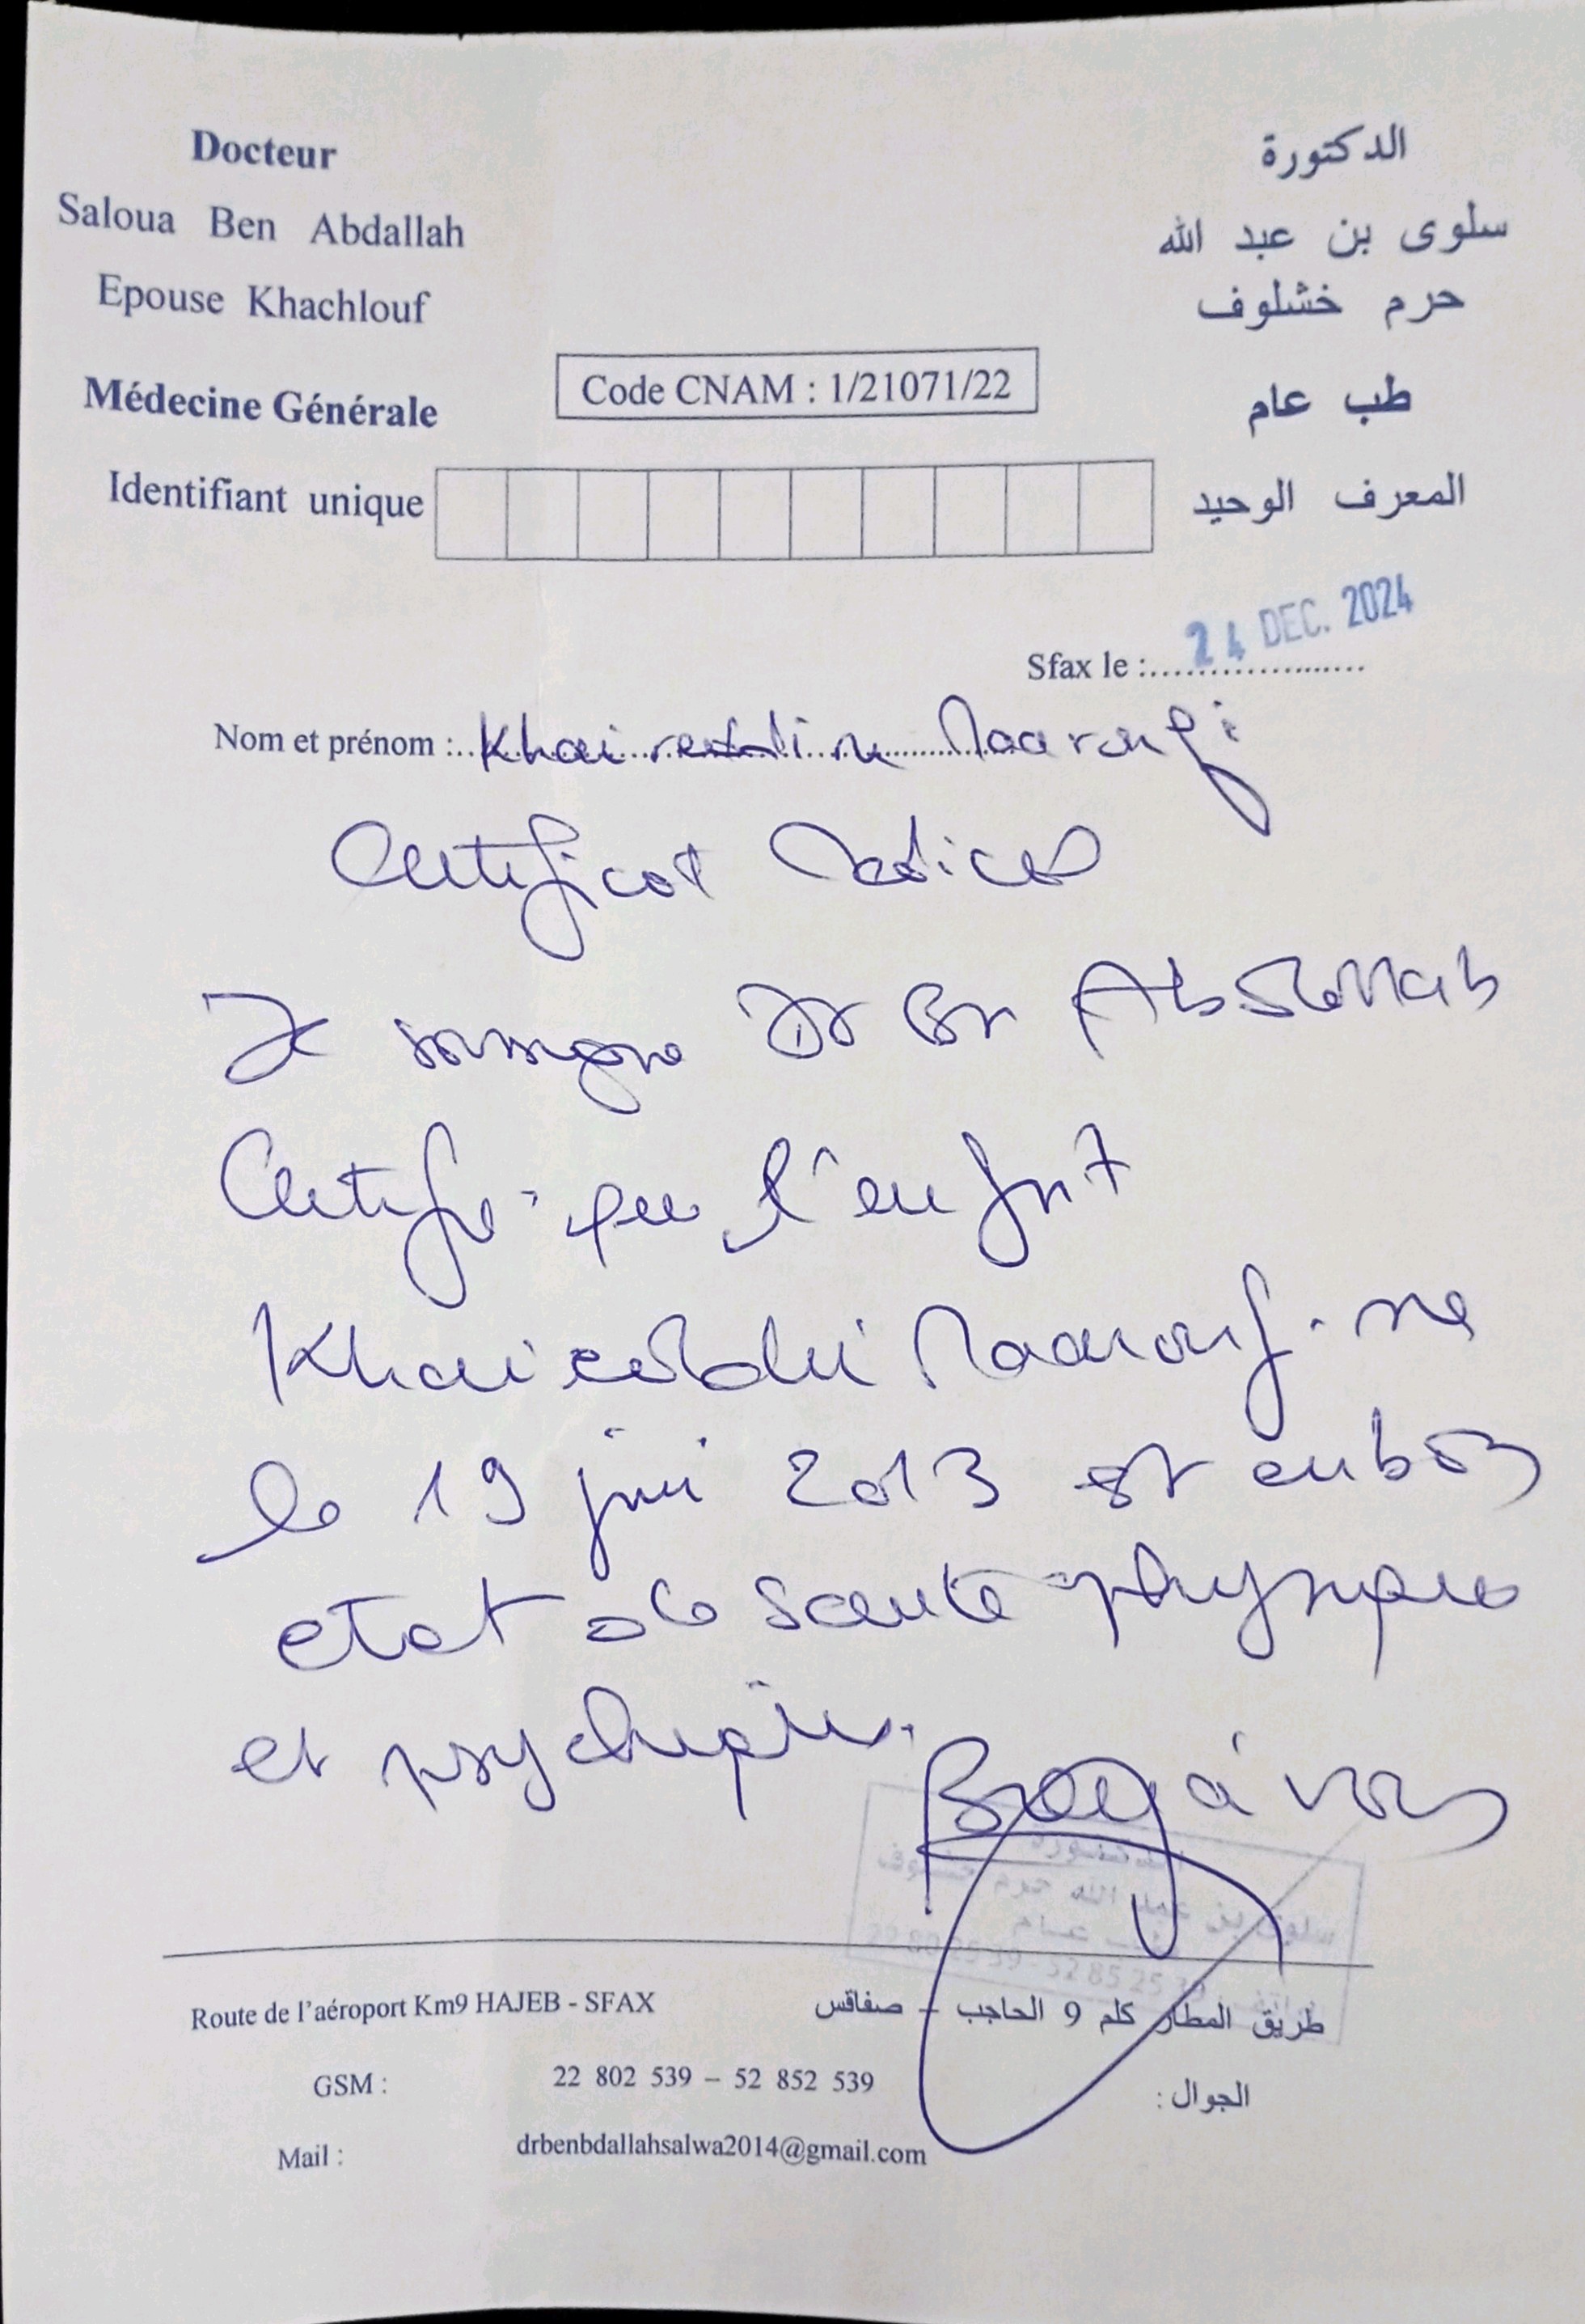 Docteur
Saloua Ben Abdallah
Epouse Khachlouf
Médecine Générale
Identifiant unique
الدكتورة
سلوى بن عبد الله
حرم خشلوف
طب عام
المعرف الوحيد
Code CNAM : 1/21071/22
Sfax le : 24 DEC. 2024
Nom et prénom : Khaireddine Maaroufi
Certificat Médical
Je soussigné Dr Ben Abdallah
Certifie que l'enfant
Khaireddine Maaroufi né
le 19 juin 2013 est en bon
etat de santé physique
et psychique.
الدكتورة
سلوى بن عبد الله حرم خشلوف
طب عام
Route de l'aéroport Km9 HAJEB - SFAX
طريق المطار كلم 9 الحاجب - صفاقس
GSM : 22 802 539 – 52 852 539 الجوال :
Mail : drbenbdallahsalwa2014@gmail.com